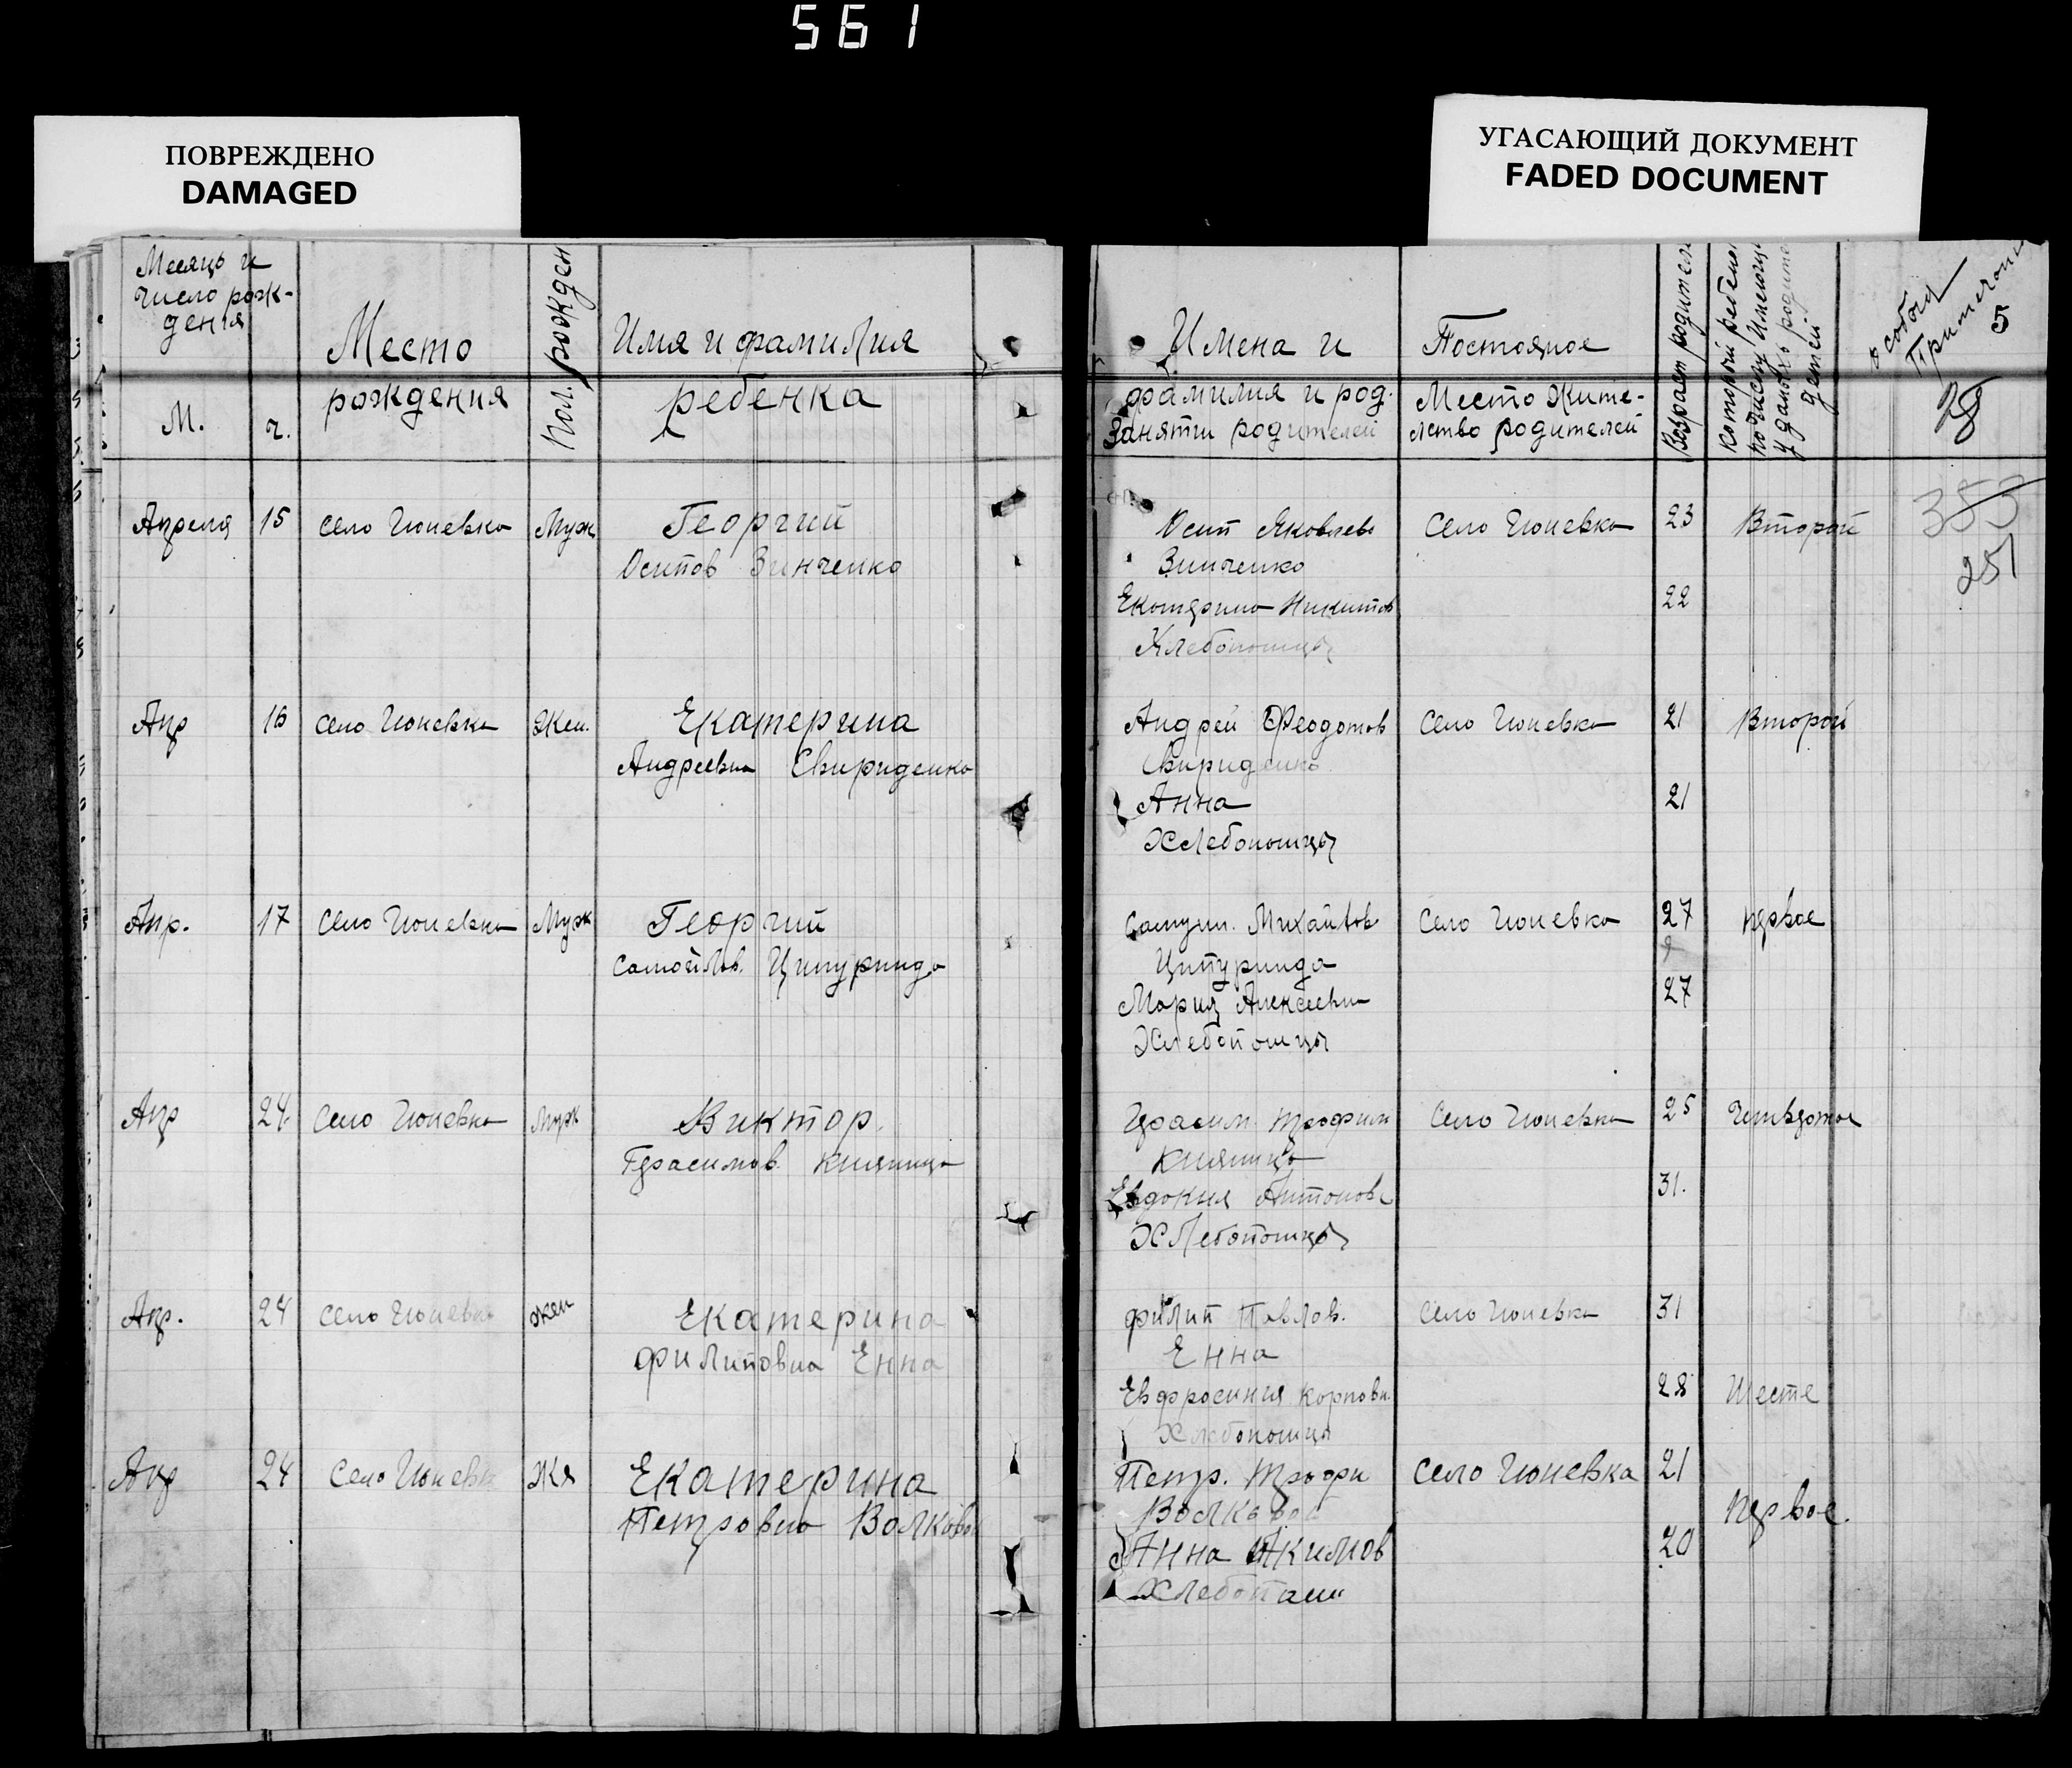 561
ПОВРЕЖДЕНО
DAMAGED
УГАСАЮЩИЙ ДОКУМЕНТ
FADED DOCUMENT
Месяць и
число рож-
дения
М.
ч.
Место
рождения
Пол. рожден
Имя и фамилия
ребенка
Имена и
фамилия и род.
Занятии родителей
Постояное
Место Жите-
лство родителей
Возраст родител
который ребено
по числу имеющи
у даныхъ родите
детей
особыя
Примечани
5
28
353
251
Апреля 15 село Гюневка Муж Георгий
Осипов Зинченко
Осип Яковлев село Гюневка 23 Второй
Зинченко
Екатерина Никитов 22
Хлебопошцы
Апр 16 село Гюневка Жен. Екатерина
Андреевна Свириденко
Андрей Феодотов село Гюневка 21 Второй
Свириденко
Анна 21
Хлебопошцы
Апр. 17 село Гюневка Муж Георгий
Самойлов. Ципуринда
Михайлов село Гюневка 27 первое
Ципуринда
Мария Алексеевна 27
Хлебопошцы
Апр 24 село Гюневка Муж Виктор.
Герасимов. Княжица
Герасим Трофим село Гюневка 25
Княжица
Евдокия Антонов 31.
Хлебопошцы
Апр. 24 село Гюневка жен Екатерина
Филиповна Енна
Филип Павлов. село Гюневка 31
Енна
Евфросиния Карповн. 28 Шесте
Хлебопошцы
Апр 24 село Гюневк Же Екатерина
Петровна Волкова
Петр. Трофи село Гюневка 21
Волковой первое.
Анна Акимов 20
Хлебопаш